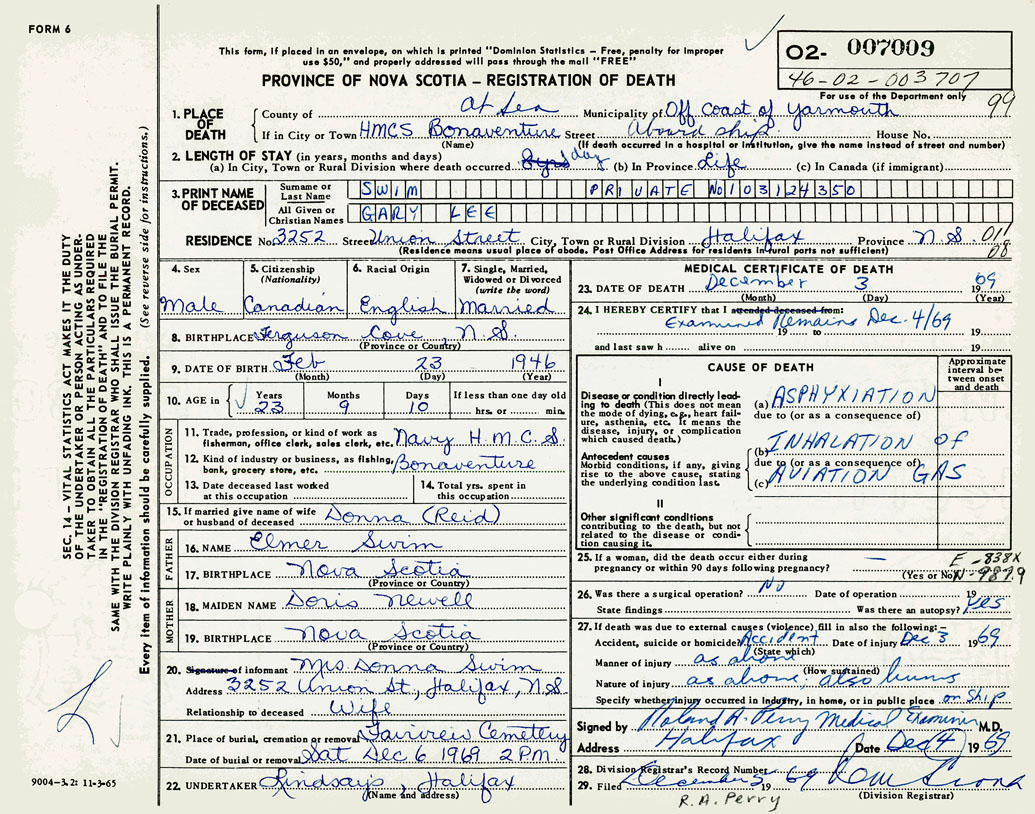 FORM 6
This form, if placed in an envelope, on which is printed "Dominion Statistics – Free, penalty for improper
use $50," and properly addressed will pass through the mail "FREE"
02- 007009
46-02-003707
For use of the Department only
99
PROVINCE OF NOVA SCOTIA – REGISTRATION OF DEATH
1. PLACE OF DEATH
County of At Sea Municipality of Off Coast of Yarmouth
If in City or Town HMCS Bonaventure Street Aboard ship House No.
(Name) (If death occurred in a hospital or institution, give the name instead of street and number)
2. LENGTH OF STAY (in years, months and days)
(a) In City, Town or Rural Division where death occurred day (b) In Province Life (c) In Canada (if immigrant)
3. PRINT NAME OF DECEASED
Surname or Last Name SWIM PRIVATE No 103124350
All Given or Christian Names GARY LEE
RESIDENCE No. 3252 Street Union Street City, Town or Rural Division Halifax Province N.S. 011
08
(Residence means usual place of abode. Post Office Address for residents in rural parts not sufficient)
4. Sex Male
5. Citizenship (Nationality) Canadian
6. Racial Origin English
7. Single, Married, Widowed or Divorced (write the word) Married
8. BIRTHPLACE Ferguson Cove, N S
(Province or Country)
9. DATE OF BIRTH Feb 23 1946
(Month) (Day) (Year)
10. AGE in Years 23 Months 9 Days 10 If less than one day old hrs. or min.
OCCUPATION
11. Trade, profession, or kind of work as fisherman, office clerk, sales clerk, etc. Navy H.M.C.S.
12. Kind of industry or business, as fishing, bank, grocery store, etc. Bonaventure
13. Date deceased last worked at this occupation
14. Total yrs. spent in this occupation
15. If married give name of wife or husband of deceased Donna (Reid)
FATHER
16. NAME Elmer Swim
17. BIRTHPLACE Nova Scotia
(Province or Country)
MOTHER
18. MAIDEN NAME Doris Newell
19. BIRTHPLACE Nova Scotia
(Province or Country)
20. Signature of informant Mrs. Donna Swim
Address 3252 Union St., Halifax, N.S
Relationship to deceased Wife
21. Place of burial, cremation or removal Fairview Cemetery
Date of burial or removal Sat Dec 6 1969 2 P.M.
22. UNDERTAKER Lindsay's, Halifax
(Name and address)
MEDICAL CERTIFICATE OF DEATH
23. DATE OF DEATH December 3 1969
(Month) (Day) (Year)
24. I HEREBY CERTIFY that I attended deceased from:
Examined Remains Dec. 4/69
19 to 19
and last saw h alive on 19
CAUSE OF DEATH
Approximate interval between onset and death
I
Disease or condition directly leading to death (This does not mean the mode of dying, e.g., heart failure, asthenia, etc. It means the disease, injury, or complication which caused death.)
(a) ASPHYXIATION
due to (or as a consequence of)
Antecedent causes
Morbid conditions, if any, giving rise to the above cause, stating the underlying condition last.
(b) INHALATION OF
due to (or as a consequence of)
(c) AVIATION GAS
II
Other significant conditions
contributing to the death, but not related to the disease or condition causing it.
25. If a woman, did the death occur either during pregnancy or within 90 days following pregnancy? —
(Yes or No)
E-838X
N-987.9
26. Was there a surgical operation? NO Date of operation 19
State findings Was there an autopsy? Yes
27. If death was due to external causes (violence) fill in also the following:–
Accident, suicide or homicide? Accident Date of injury Dec 3 1969
(State which)
Manner of injury as above
(How sustained)
Nature of injury as above; also burns
Specify whether injury occurred in Industry, in home, or in public place on Ship
Signed by Roland A. Perry Medical Examiner M.D.
Address Halifax Date Dec 4 1969
28. Division Registrar's Record Number
29. Filed December 5 19 69
(Division Registrar)
R.A. Perry
SEC. 14 – VITAL STATISTICS ACT MAKES IT THE DUTY
OF THE UNDERTAKER OR PERSON ACTING AS UNDER-
TAKER TO OBTAIN ALL THE PARTICULARS REQUIRED
IN THE "REGISTRATION OF DEATH" AND TO FILE THE
SAME WITH THE DIVISION REGISTRAR WHO SHALL ISSUE THE BURIAL PERMIT.
WRITE PLAINLY WITH UNFADING INK. THIS IS A PERMANENT RECORD.
Every item of information should be carefully supplied. (See reverse side for instructions.)
9004-3.2: 11-3-65